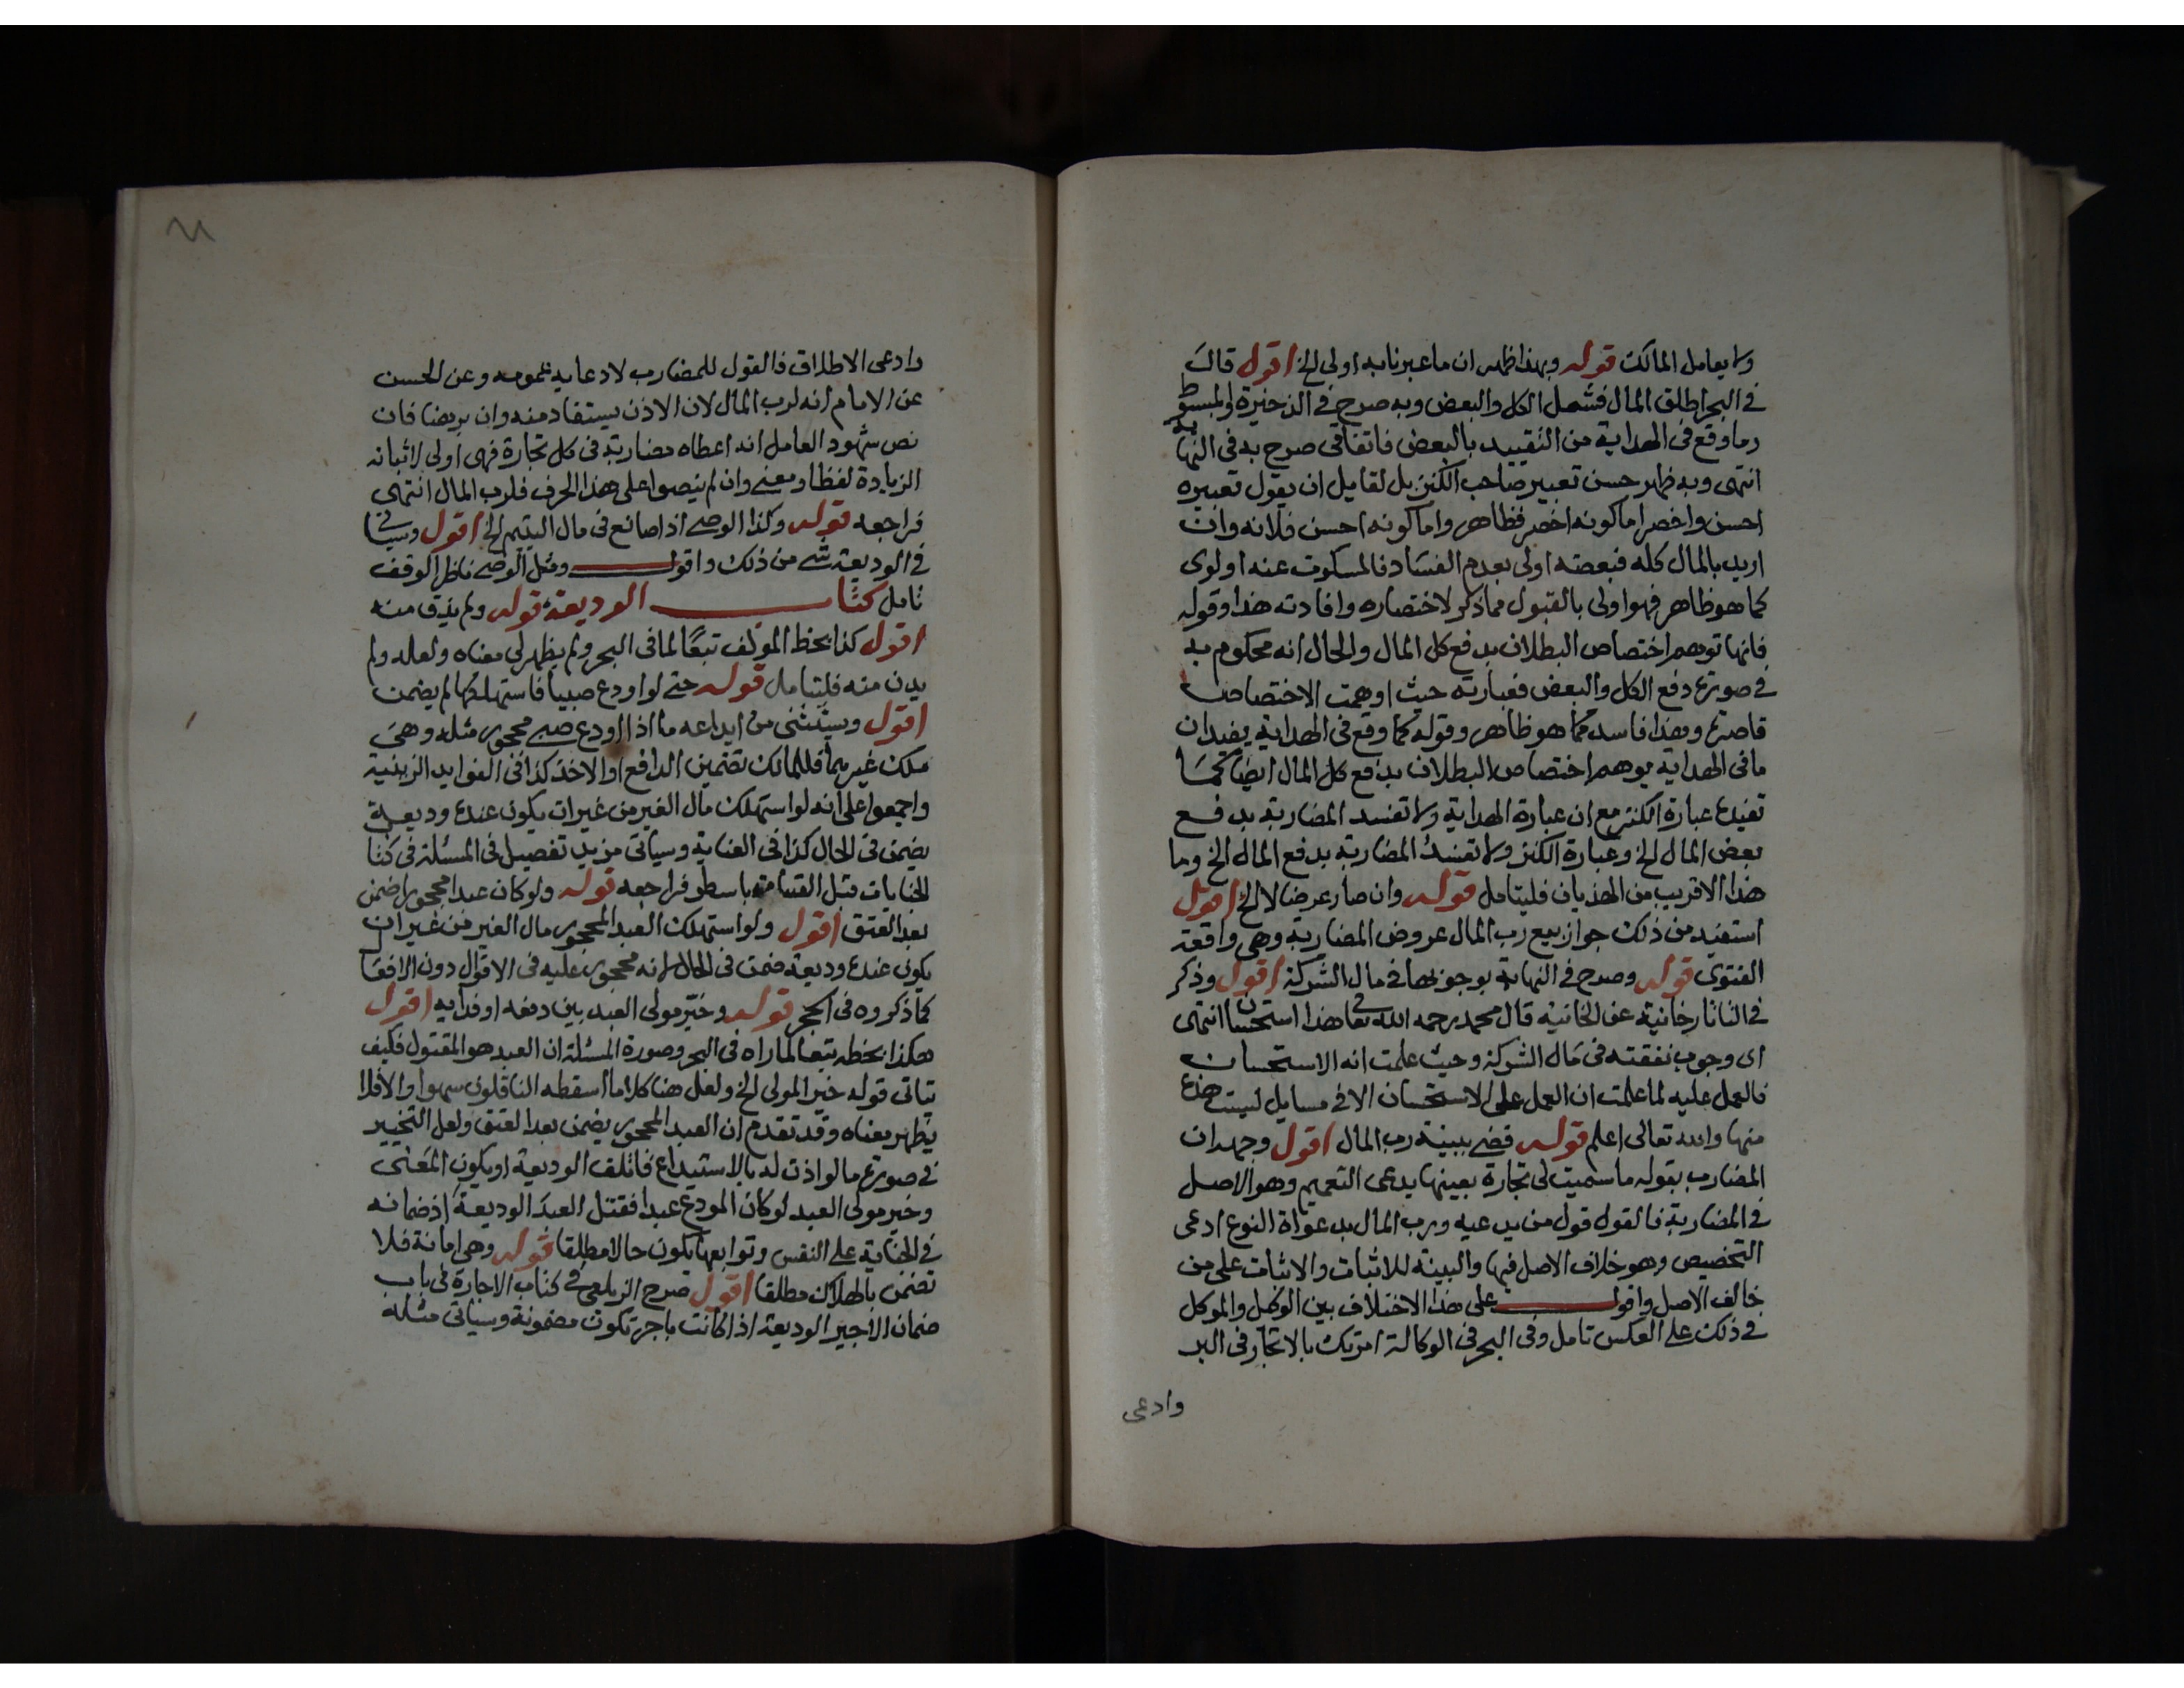 ولا يعامل المالك قوله وبهذا ظهر ان ما عبرنا به اولى الخ اقول قال
في البحر اطلق المال فشمل الكل والبعض وبه صرح في الذخيرة والمبسوط
وما وقع في الهداية من التقييد بالبعض فاتفاقي صرح به في النهاية
انتهى وبه ظهر حسن تعبير صاحب الكنز بل لقايل ان يقول تعبيره
احسن واخصر اما كونه اخصر فظاهر واما كونه احسن فلانه وان
اريد بالمال كله فبعضه اولى بعدم الفساد فالمسكوت عنه اولوى
كما هو ظاهر فهو اولى بالقبول مما ذكر لاختصاره وافادته هذا وقوله
فانها توهم اختصاص البطلان بدفع كل المال والحال انه محكوم به
في صورة دفع الكل والبعض فعبارته حيث اوهمت الاختصاص
قاصرة وهذا فاسد كما هو ظاهر وقوله كما وقع في الهداية يفيد ان
ما في الهداية يوهم اختصاص البطلان بدفع كل المال ايضا كما
تفيده عبارة الكنز مع ان عبارة الهداية ولا تفسد المضاربة بدفع
بعض المال الخ وعبارة الكنز ولا تفسد المضاربة بدفع المال الخ وما
هذا الا قريب من الهذيان فليتامل قوله وان صار عرضا لا الخ اقول
استفيد من ذلك جواز بيع رب المال عروض المضاربة وهي واقعة
الفتوى قوله وصرح في النهاية بوجوبها في مال الشركة اقول وذكر
في التاتارخانية عن الخانية قال محمد رحمه الله تعا هذا استحسان انتهى
اى وجوب نفقته في مال الشركة وحيث علمت انه الاستحسان
فالعمل عليه لما علمت ان العمل على الاستحسان الا في مسايل ليست هذه
منها والله تعالى اعلم قوله قضى ببينة رب المال اقول وجهه ان
المضارب بقوله ما سميت لي تجارة بعينها يدعى التعميم وهو الاصل
في المضاربة فالقول قول من يدعيه ورب المال بدعواه النوع ادعى
التخصيص وهو خلاف الاصل فيها والبينة للاثبات والاثبات على من
خالف الاصل واقول على هذا الاختلاف بين الوكيل والموكل
في ذلك على العكس تامل وفي البحر في الوكالة امرتك بالاتجار في البر
وادعى
وادعى الاطلاق فالقول للمضارب لادعايه عمومه وعن الحسن
عن الامام انه لرب المال لان الاذن يستفاد منه وان برهنا فان
نص شهود العامل انه اعطاه مضاربة في كل تجارة فهى اولى لاثباته
الزيادة لفظا ومعنى وان لم ينصوا على هذا الحرف فلرب المال انتهى
فراجعه قوله وكذا الوصي اذا صانع في مال اليتيم الخ اقول وسياتي
في الوديعة شي من ذلك واقول ومثل الوصي ناظر الوقف
تامل كتاب الوديعة قوله ولم يذق منه
اقول كذا بخط المولف تبعًا لما في البحر ولم يظهر لي معناه ولعله ولم
يدن منه فليتامل قوله حتى لو اودع صبيا فاستهلكها لم يضمن
اقول ويستثنى من ايداعه ما اذا اودع صبي محجور مثله وهي
ملك غيرهما فللمالك تضمين الدافع او الاخذ كذا في الفوايد الزينية
واجمعوا على انه لو استهلك مال الغير من غير ان يكون عنده وديعة
يضمن في الحال كذا في العناية وسياتي مزيد تفصيل في المسئلة في كتاب
الجنايات قبل القسامة باسطر فراجعه قوله ولو كان عبدا محجورا ضمن
بعد العتق اقول ولو استهلك العبد المحجور مال الغير من غير ان
يكون عنده وديعة ضمن في الحال لانه محجور عليه في الاقوال دون الافعال
كما ذكروه في الحجر قوله وخير مولى العبد بين دفعه او فدايه اقول
هكذا بخطه تبعا لما راه في البحر وصورة المسئلة ان العبد هو المقتول فكيف
يتاتى قوله خير المولى الخ ولعل هنا كلاما اسقطه الناقلون سهوا والا فلا
يظهر معناه وقد تقدم ان العبد المحجور يضمن بعد العتق ولعل التخيير
في صورة ما لو اذن له بالاستيداع فاتلف الوديعة او يكون المعنى
وخير مولى العبد لو كان المودع عبدا فقتل العبد الوديعة اذ ضمانه
في الجناية على النفس وتوابعها يكون حالا مطلقا قوله وهي امانة فلا
تضمن بالهلاك مطلقا اقول صرح الزيلعي في كتاب الاجارة في باب
ضمان الاجير الوديعة اذا كانت باجر تكون مضمونة وسياتي مثله